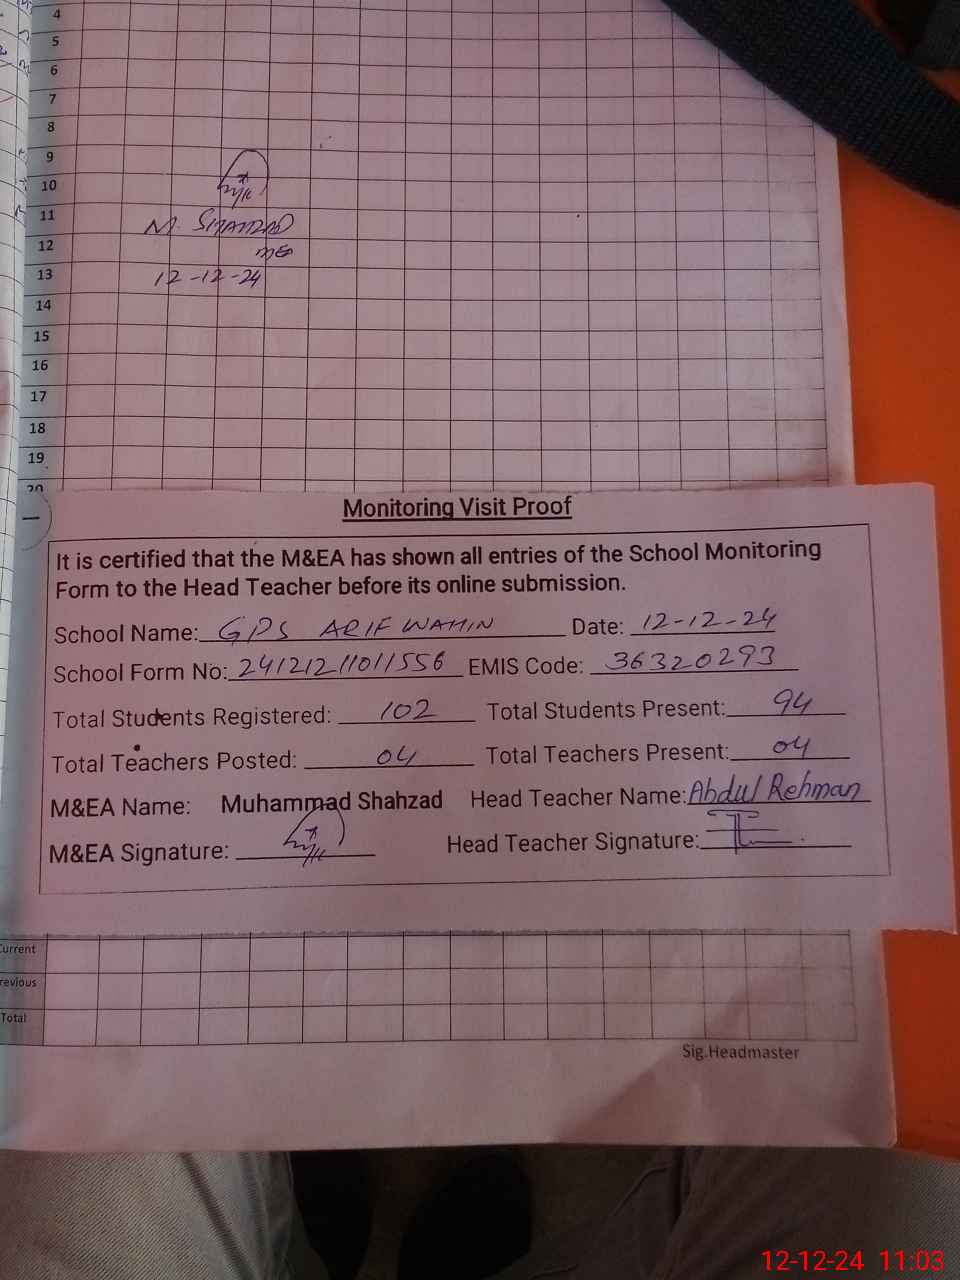 4
5
6
7
8
9
10
11
12
13
14
15
16
17
18
19
20
M. SHAHZAD
MEA
12-12-24
Monitoring Visit Proof
It is certified that the M&EA has shown all entries of the School Monitoring
Form to the Head Teacher before its online submission.
School Name: GPS ARIF WAHIN Date: 12-12-24
School Form No: 24121211011556 EMIS Code: 36320293
Total Students Registered: 102 Total Students Present: 94
Total Teachers Posted: 04 Total Teachers Present: 04
M&EA Name: Muhammad Shahzad Head Teacher Name: Abdul Rehman
M&EA Signature: Head Teacher Signature:
Current
revious
Total
Sig.Headmaster
12-12-24 11:03